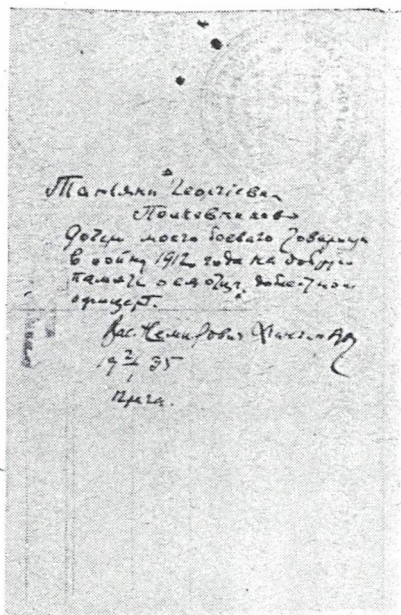 Татьянѣ Георгіевнѣ
Полковниково
дочери моего боевого товарища
в войну 1912 года на добрую
память о
офицерѣ.
Вас. Немирович Данченко
19 2/1 35
Прага.